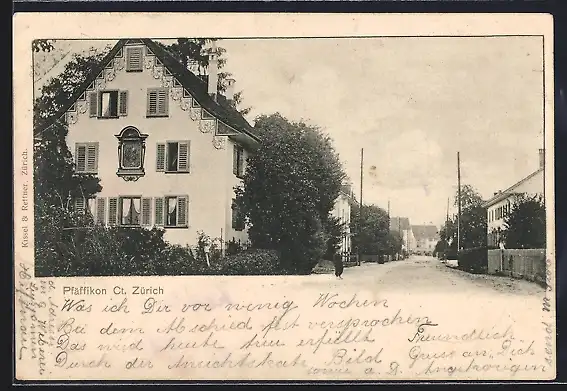 Kissel & Rettner, Zürich.
Pfäffikon Ct. Zürich
Was ich Dir vor wenig Wochen
Bei dem Abschied fest versprochen
Das wird heute hier erfüllt
Durch der Ansichtskart. Bild
Freundlich
Gruss an Dich
sowie a. d. Angehörigen